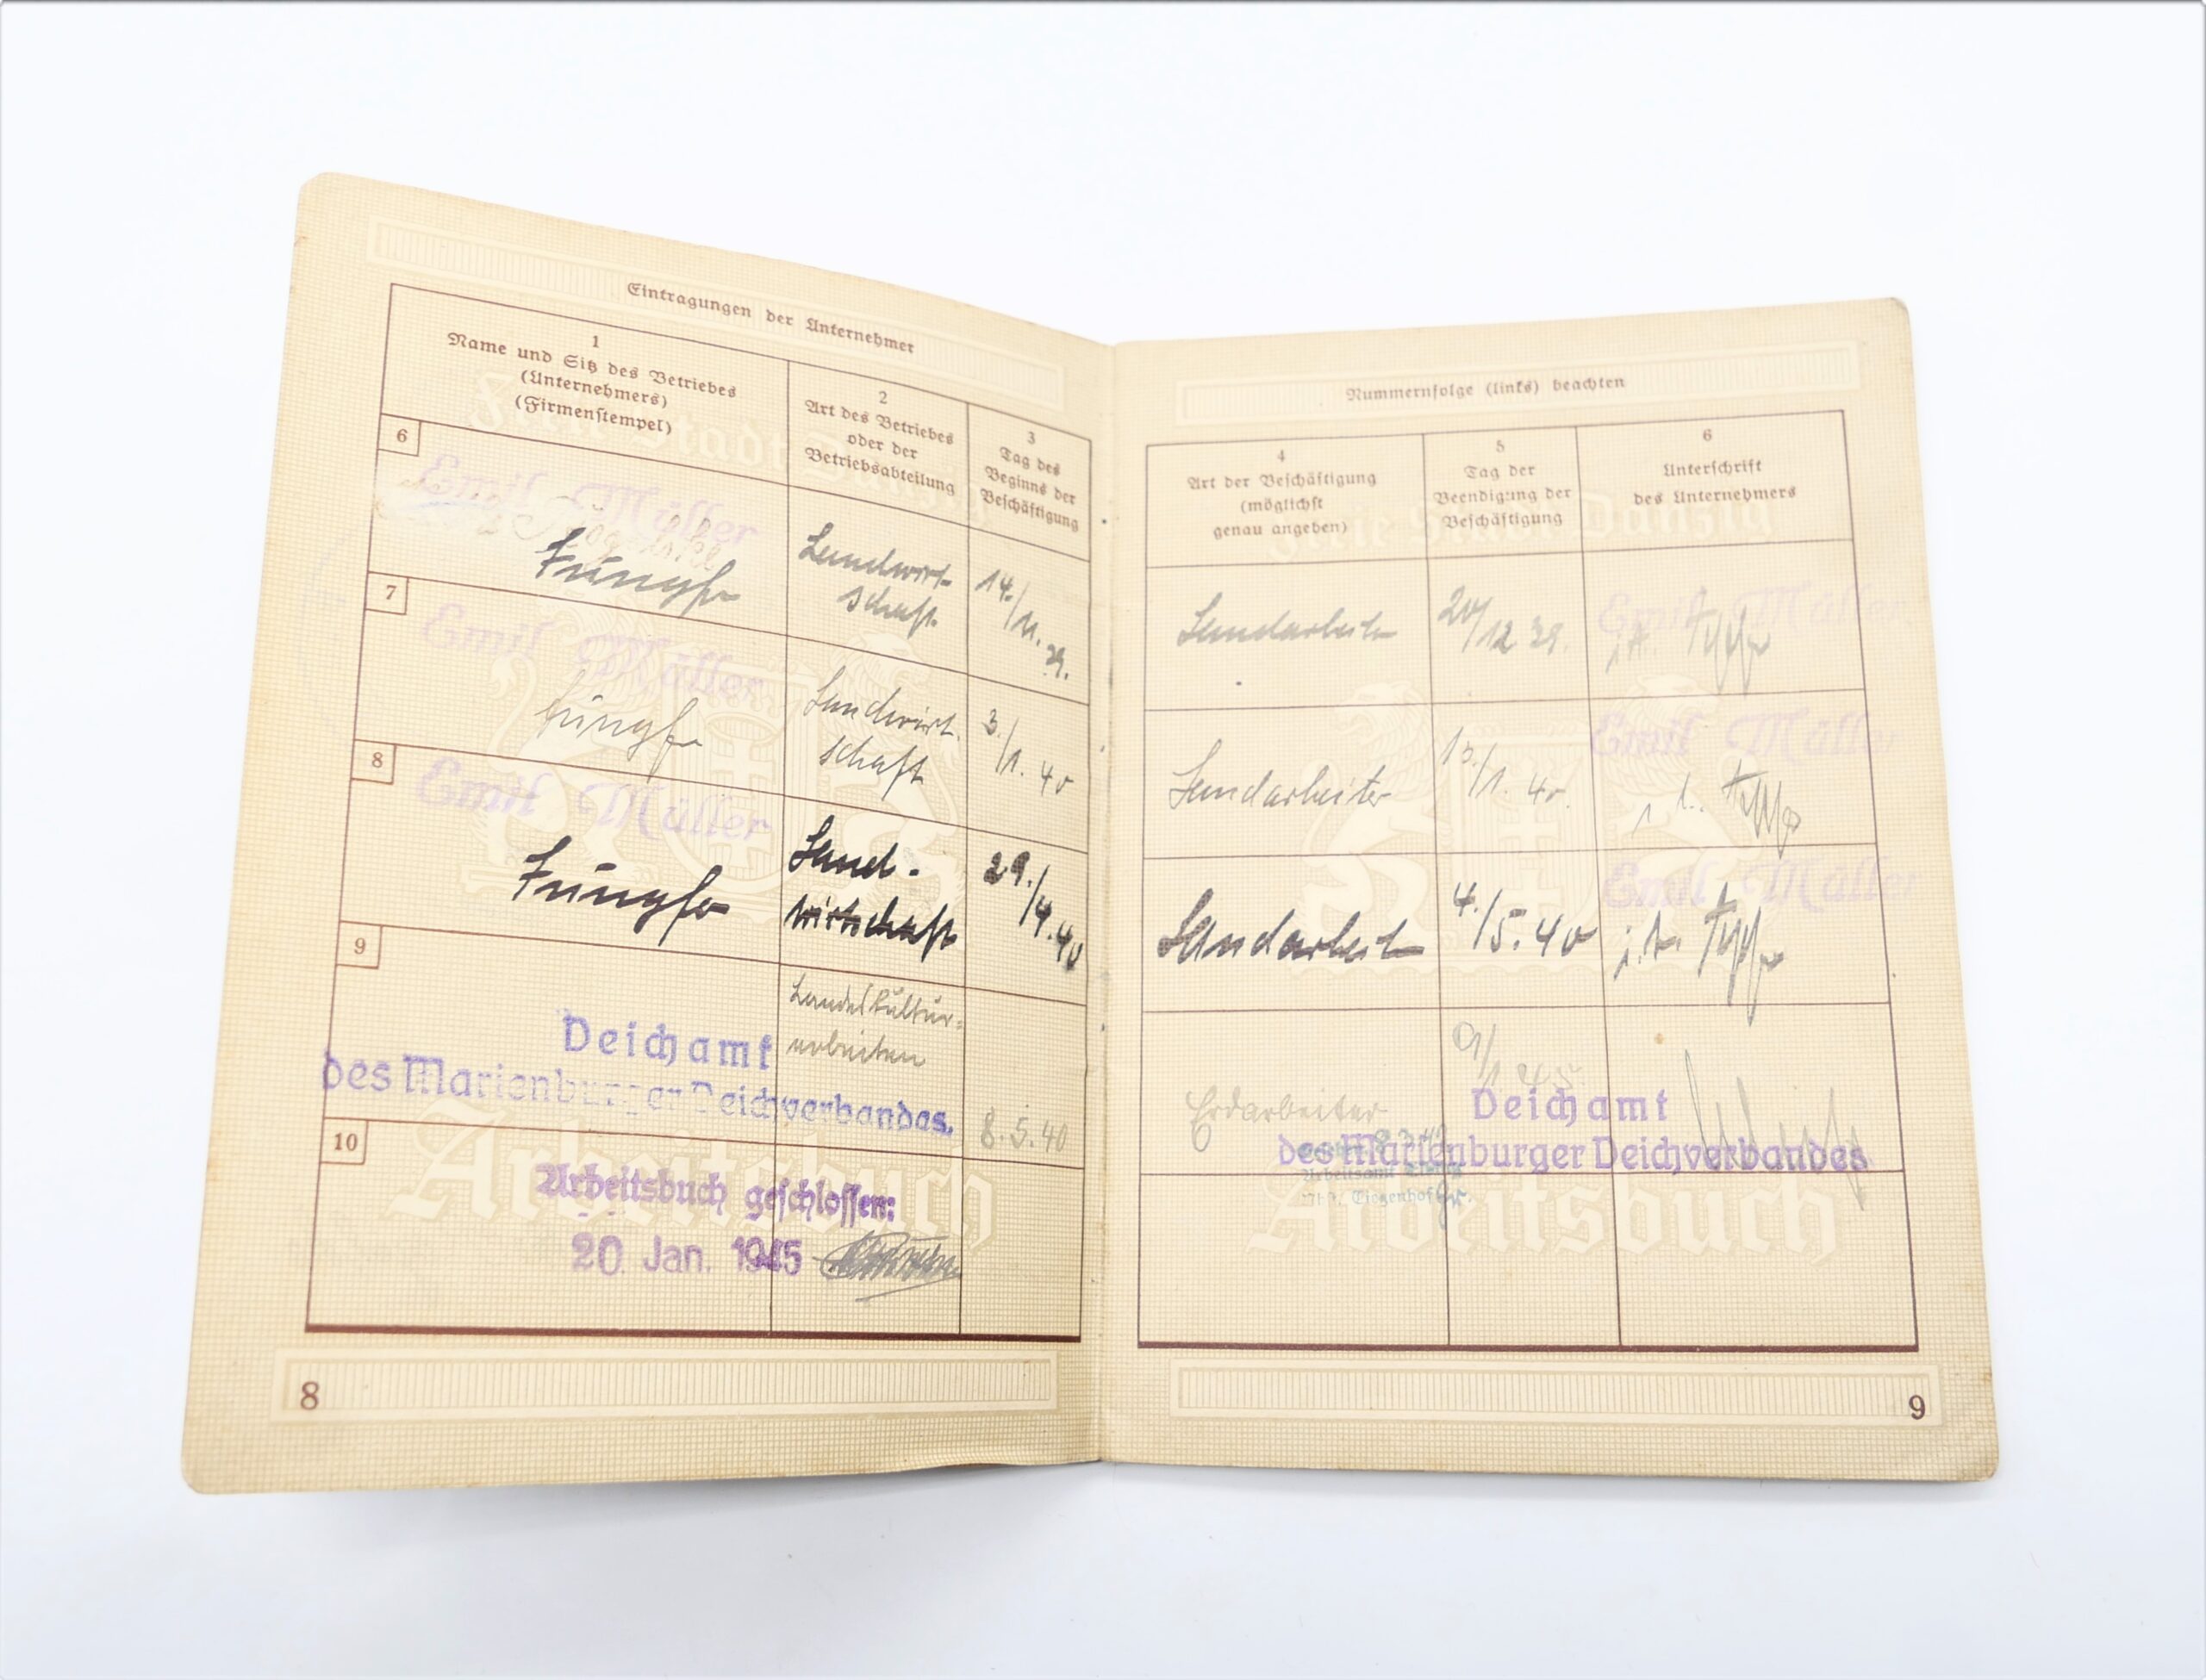 Eintragungen der Unternehmer
1
Name und Sitz des Betriebes
(Unternehmers)
(Firmenstempel)
2
Art des Betriebes
oder der
Betriebsabteilung
3
Tag des
Beginns der
Beschäftigung
6
Emil Müller
Landwirt-
schaft
14./11. 39.
7
Emil Müller
Landwirt-
schaft
3./1. 40
8
Emil Müller
Land-
wirtschaft
29./4. 40
9
Deichamt
des Marienburger Deichverbandes.
Landeskultur-
arbeiten
8.5.40
10
Arbeitsbuch geschlossen:
20. Jan. 1945
Freie Stadt Danzig
Arbeitsbuch
8
Nummernfolge (links) beachten
4
Art der Beschäftigung
(möglichst
genau angeben)
5
Tag der
Beendigung der
Beschäftigung
6
Unterschrift
des Unternehmers
Landarbeiter
20/12 39.
Emil Müller
Landarbeiter
13./1. 40.
Emil Müller
Landarbeiter
4./5. 40
Emil Müller
Erdarbeiter
Deichamt
des Marienburger Deichverbandes
Arbeitsamt
Tiegenhof
Freie Stadt Danzig
Arbeitsbuch
9